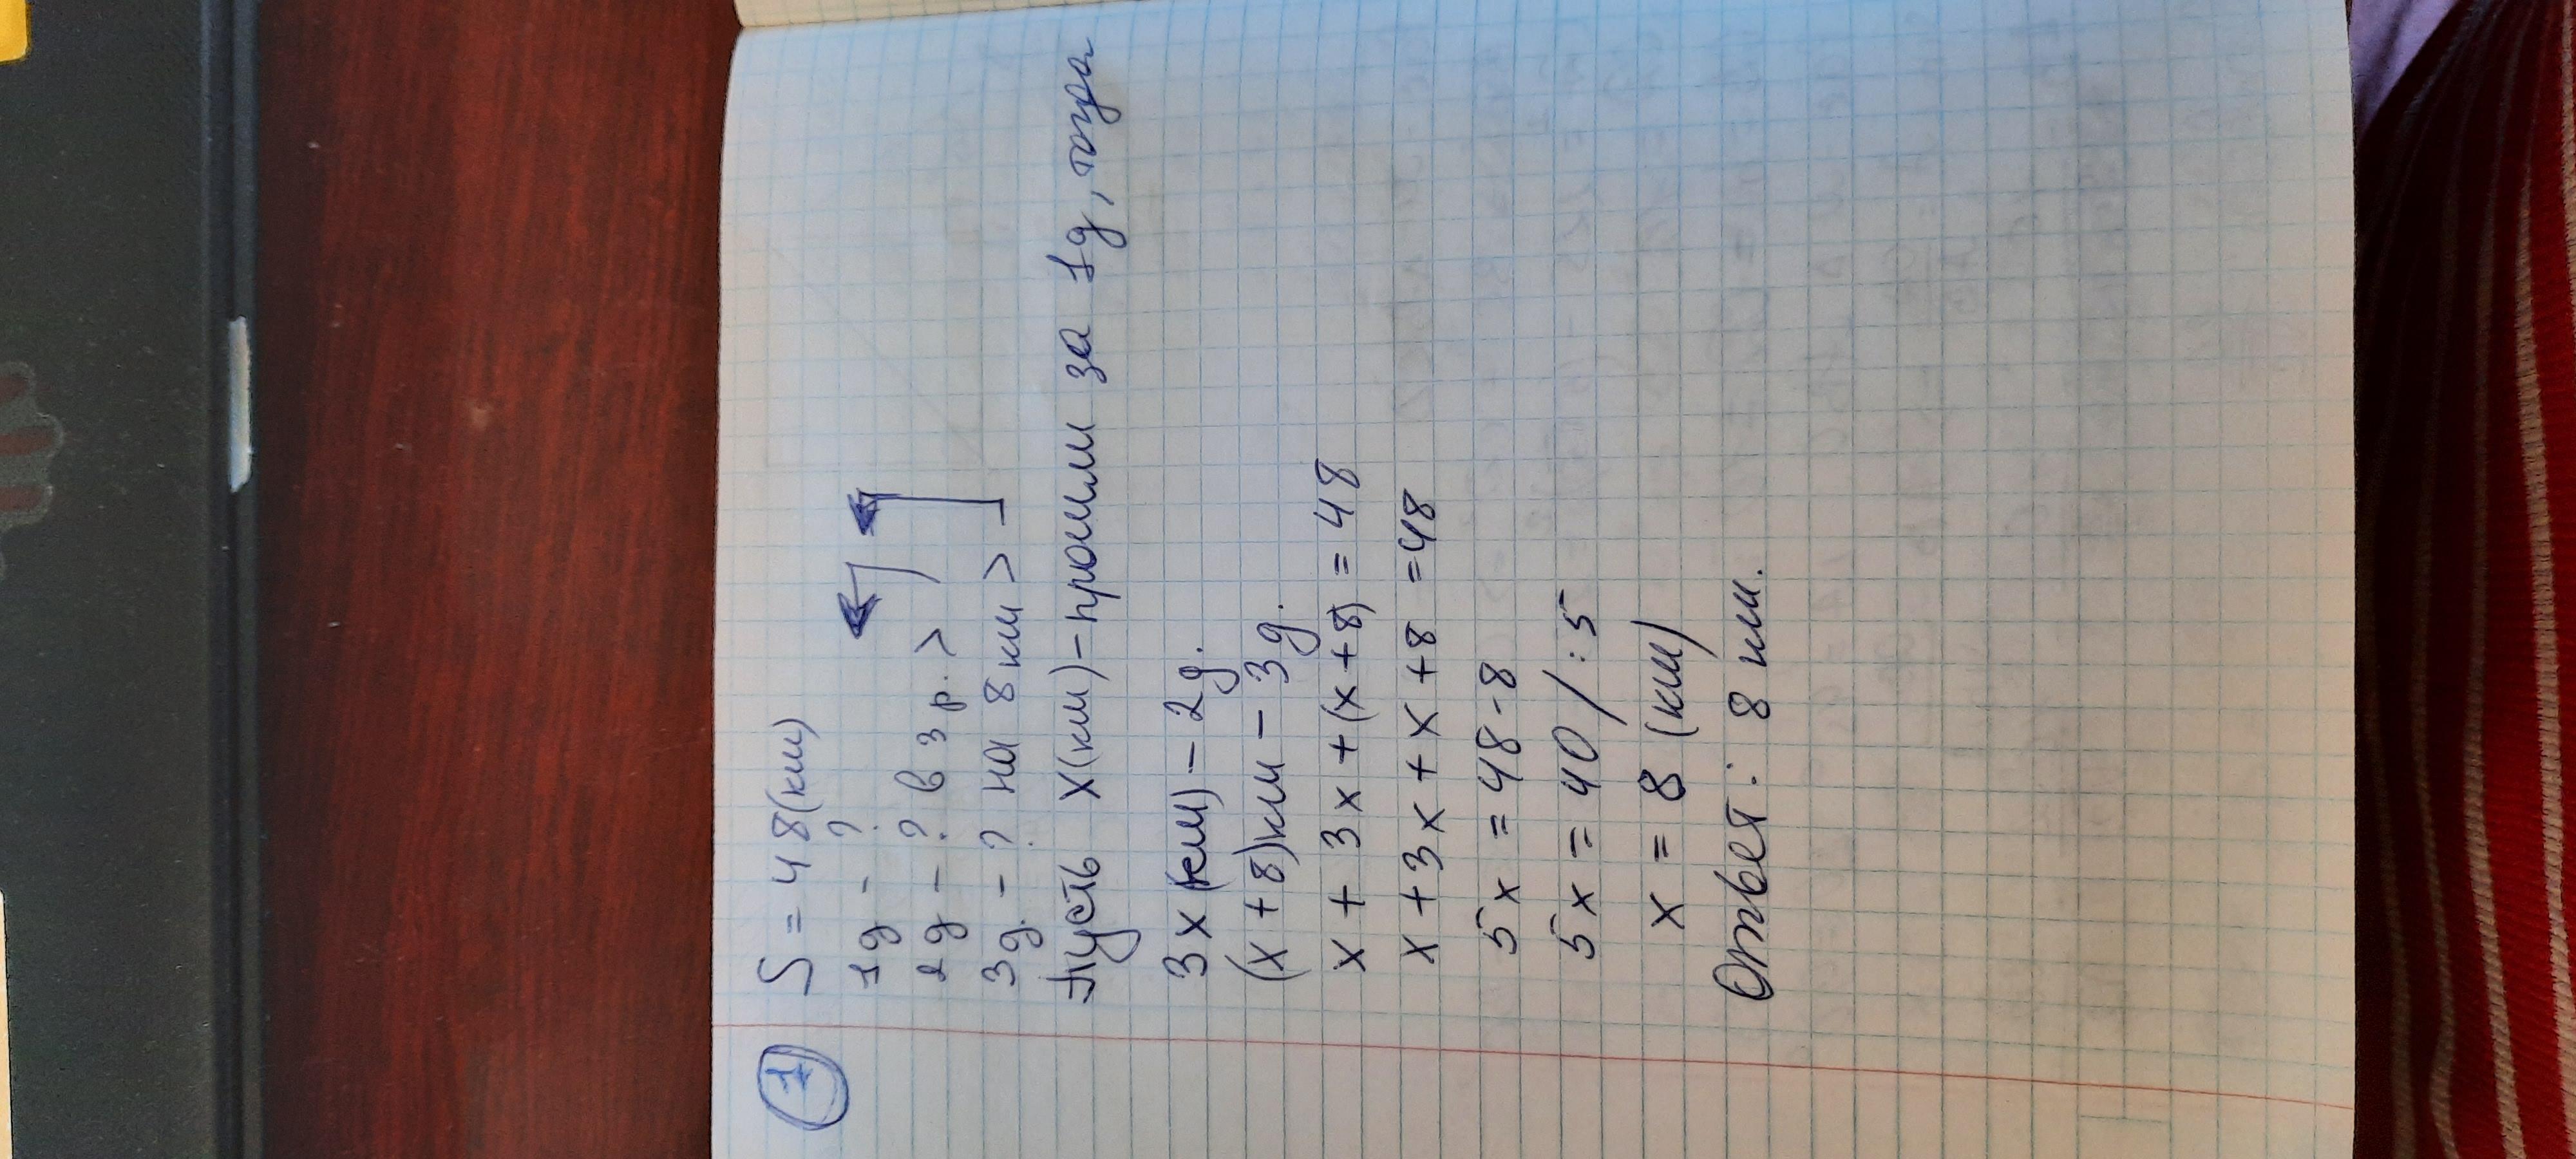 ① S = 48(км)
1д - ?
2д - ? в 3 р. >
3д. - ? на 8 км >
Пусть х(км) - прошли за 1д, тогда
3х (км) - 2д.
(х + 8)км - 3д.
х + 3х + (х + 8) = 48
х + 3х + х + 8 = 48
5х = 48 - 8
5х = 40 / : 5
х = 8 (км)
Ответ: 8 км.